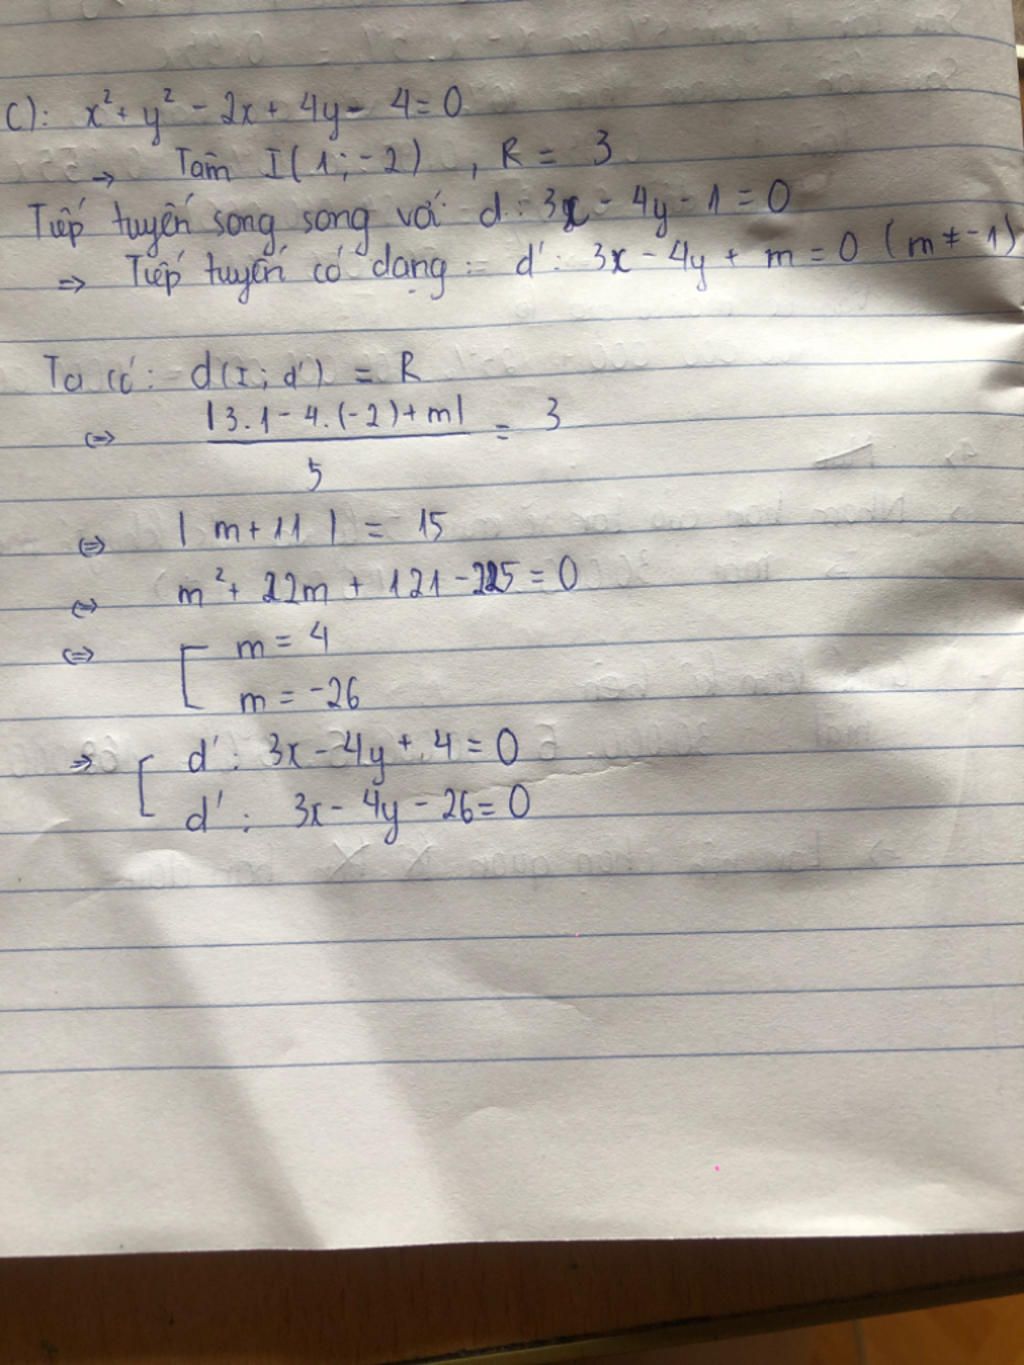 C): x² + y² - 2x + 4y - 4 = 0
→ Tâm I(1; -2) , R = 3
Tiếp tuyến song song với d: 3x - 4y - 1 = 0
⇒ Tiếp tuyến có dạng: d': 3x - 4y + m = 0 (m ≠ -1)
Ta có: d(I; d') = R
⇔ |3.1 - 4.(-2) + m| / 5 = 3
⇔ |m + 11| = 15
⇔ m² + 22m + 121 - 225 = 0
⇔ [ m = 4
m = -26
⇒ [ d': 3x - 4y + 4 = 0
d': 3x - 4y - 26 = 0